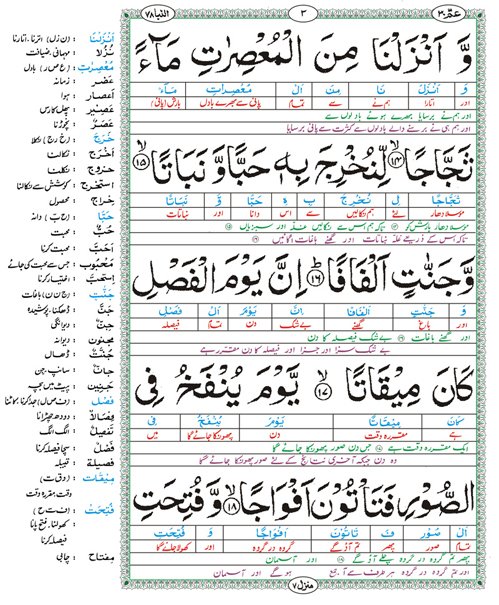 النبا ٧٨
٣
عمّ ٣٠
وَّ اَنْزَلْنَا مِنَ الْمُعْصِرٰتِ مَآءً
وَ اَنْزَلْ نَا مِنَ الْ مُعْصِرَاتِ مَآءً
اور اتارا ہم نے سے تمام پانی سے بھرے بادل بارش (پانی)
اور ہم نے برسایا بھرے ہوئے بادلوں سے
اور ہم ہی نے برسنے والے بادلوں سے کثرت سے پانی برسایا
ثَجَّاجًا ﴿١٤﴾ لِّنُخْرِجَ بِهٖ حَبًّا وَّ نَبَاتًا ﴿١٥﴾
ثَجَّاجًا لِ نُخْرِجَ بِ هٖ حَبًّا وَّ نَبَاتًا
موسلا دھار تاکہ ہم نکالیں سے اس دانا اور نباتات
موسلا دھار بارش کو تاکہ ہم اس سے نکالیں غلہ اور سبزیاں
تاکہ اس کے ذریعے غلہ نباتات اور گھنے باغات اگائیں
وَّ جَنّٰتٍ اَلْفَافًا ﴿١٦﴾ اِنَّ يَوْمَ الْفَصْلِ
وَ جَنّٰتٍ اَلْفَافًا اِنَّ يَوْمَ الْ فَصْلِ
اور باغ گھنے بے شک دن تمام فیصلہ
اور گھنے باغات بے شک فیصلہ کا دن
بے شک سزا اور جزا اور فیصلہ کا دن مقرر ہے
كَانَ مِيْقَاتًا ﴿١٧﴾ يَّوْمَ يُنْفَخُ فِى
كَانَ مِيْقَاتًا يَوْمَ يُنْفَخُ فِى
ہے مقررہ وقت دن پھونکا جائے گا میں
ایک مقررہ وقت ہے جس دن صور پھونکا جائے گا
وہ دن جبکہ آخری نتائج کے لئے صور پھونکا جائے گا
الصُّوْرِ فَتَاْتُوْنَ اَفْوَاجًا ﴿١٨﴾ وَّ فُتِحَتِ
الْ صُوْرِ فَ تَاْتُوْنَ اَفْوَاجًا وَ فُتِحَتِ
تمام صور پھر تم آؤ گے گروہ در گروہ اور کھولا جائے گا
پھر تم گروہ در گروہ چلے آؤ گے اور آسمان
اور تم گروہ در گروہ ہر طرف سے آ جمع ہو گے اور آسمان
منزل ٧
اَنْزَلْنَا : (ن ز ل) اترنا، اتارنا
نُزُلًا : مہمانی، ضیافت
مُعْصِرٰت : (ع ص ر) بادل
عَصْر : زمانہ
اِعْصَار : ہوا
عَصِيْر : پھل کا رس
عَصَرَ : نچوڑنا
خَرَجَ : (خ ر ج) نکلا
اَخْرَجَ : نکالنا
خُرُوْج : نکلنا
اِسْتَخْرَجَ : کوشش سے نکالنا
خَرَاج : محصول
حَبًّا : (ح ب ب) دانہ
حُبّ : محبت
اَحَبَّ : محبت کرنا
مَحْبُوْب : جس سے محبت کی جائے
اِسْتَحَبَّ : اختیار کرنا
جَنّٰت : (ج ن ن) باغات
جَنَّ : ڈھکنا، پوشیدہ
جِنَّة : دیوانگی
مَجْنُوْن : دیوانہ
جُنَّة : ڈھال
جَانّ : سانپ، جن
جَنِيْن : پیٹ میں بچہ
فَصْل : (ف ص ل) جدا کرنا، کاٹنا
فِصَالًا : دودھ چھڑانا
تَفْصِيْل : الگ الگ
فَصْل : سچا فیصلہ کرنا
فَصِيْلَة : قبیلہ
مِيْقَات : (و ق ت)
وقت، مقررہ وقت
فُتِحَتْ : (ف ت ح)
کھولنا، فتح پانا
فیصلہ کرنا
مِفْتَاح : چابی